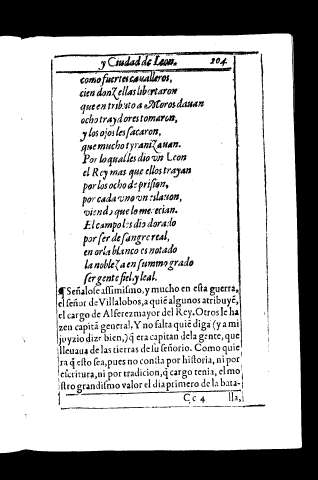 y Ciudad de Leon. 204
como fuertes caualleros,
cien donzellas libertaron
que en tributo a Moros dauan
ocho traydores tomaron,
y los ojos les sacaron,
que mucho tyranizauan.
Por lo qual les dio vn Leon
el Rey mas que ellos trayan
por los ocho de prision,
por cada vno vn eslauon,
viendo que lo merecian.
El campo les dio dorado
por ser de sangre real,
en orla blanco es notado
la nobleza en summo grado
ser gente fiel, y leal.
¶ Señalose assimismo, y mucho en esta guerra,
el señor de Villalobos, a quiẽ algunos atribuyẽ,
el cargo de Alferez mayor del Rey. Otros le ha
zen capitã general. Y no falta quiẽ diga (y a mi
juyzio dize bien,) q̃ era capitan dela gente, que
lleuaua de las tierras de su señorio. Como quie
ra q̃ esto sea, pues no consta por historia, ni por
escritura, ni por tradicion, q̃ cargo tenia, el mo
stro grandissimo valor el dia primero de la bata-
Cc 4 lla,